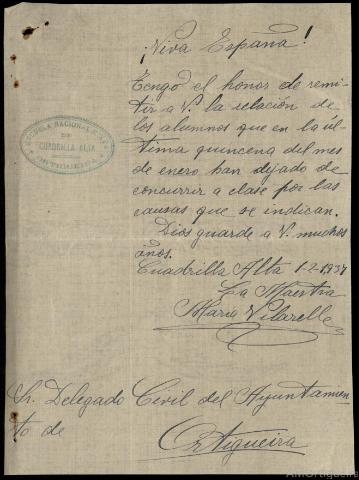 ¡Viva España!
Tengo el honor de remi-
tir a V. la relación de
los alumnos que en la úl-
tima quincena del mes
de enero han dejado de
concurrir a clase por las
causas que se indican.
Dios guarde a V. muchos
años.
Cuadrilla Alta 1-2-1937
La Maestra
María Vilarelle
ESCUELA NACIONAL
DE
CUADRILLA ALTA
ORTIGUEIRA
Sr. Delegado Civil del Ayuntamien
to de
Ortigueira
AMOrtigueira